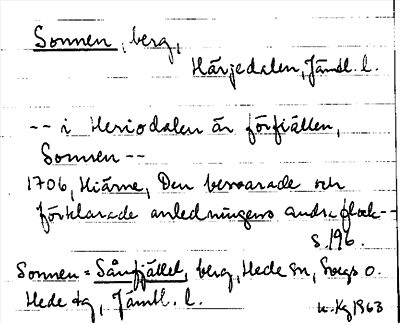 Sonnen, berg,
Härjedalen, Jämtl. l.
-- i Heriodalen är förfiällen,
Sonnen --
1706, Hiärne, Den beswarade och
förklarade anledningens andra flock--
s. 196.
Sonnen = Sånfjället, berg, Hede sn, Svegs o.
Hede tg, Jämtl. l.
1963